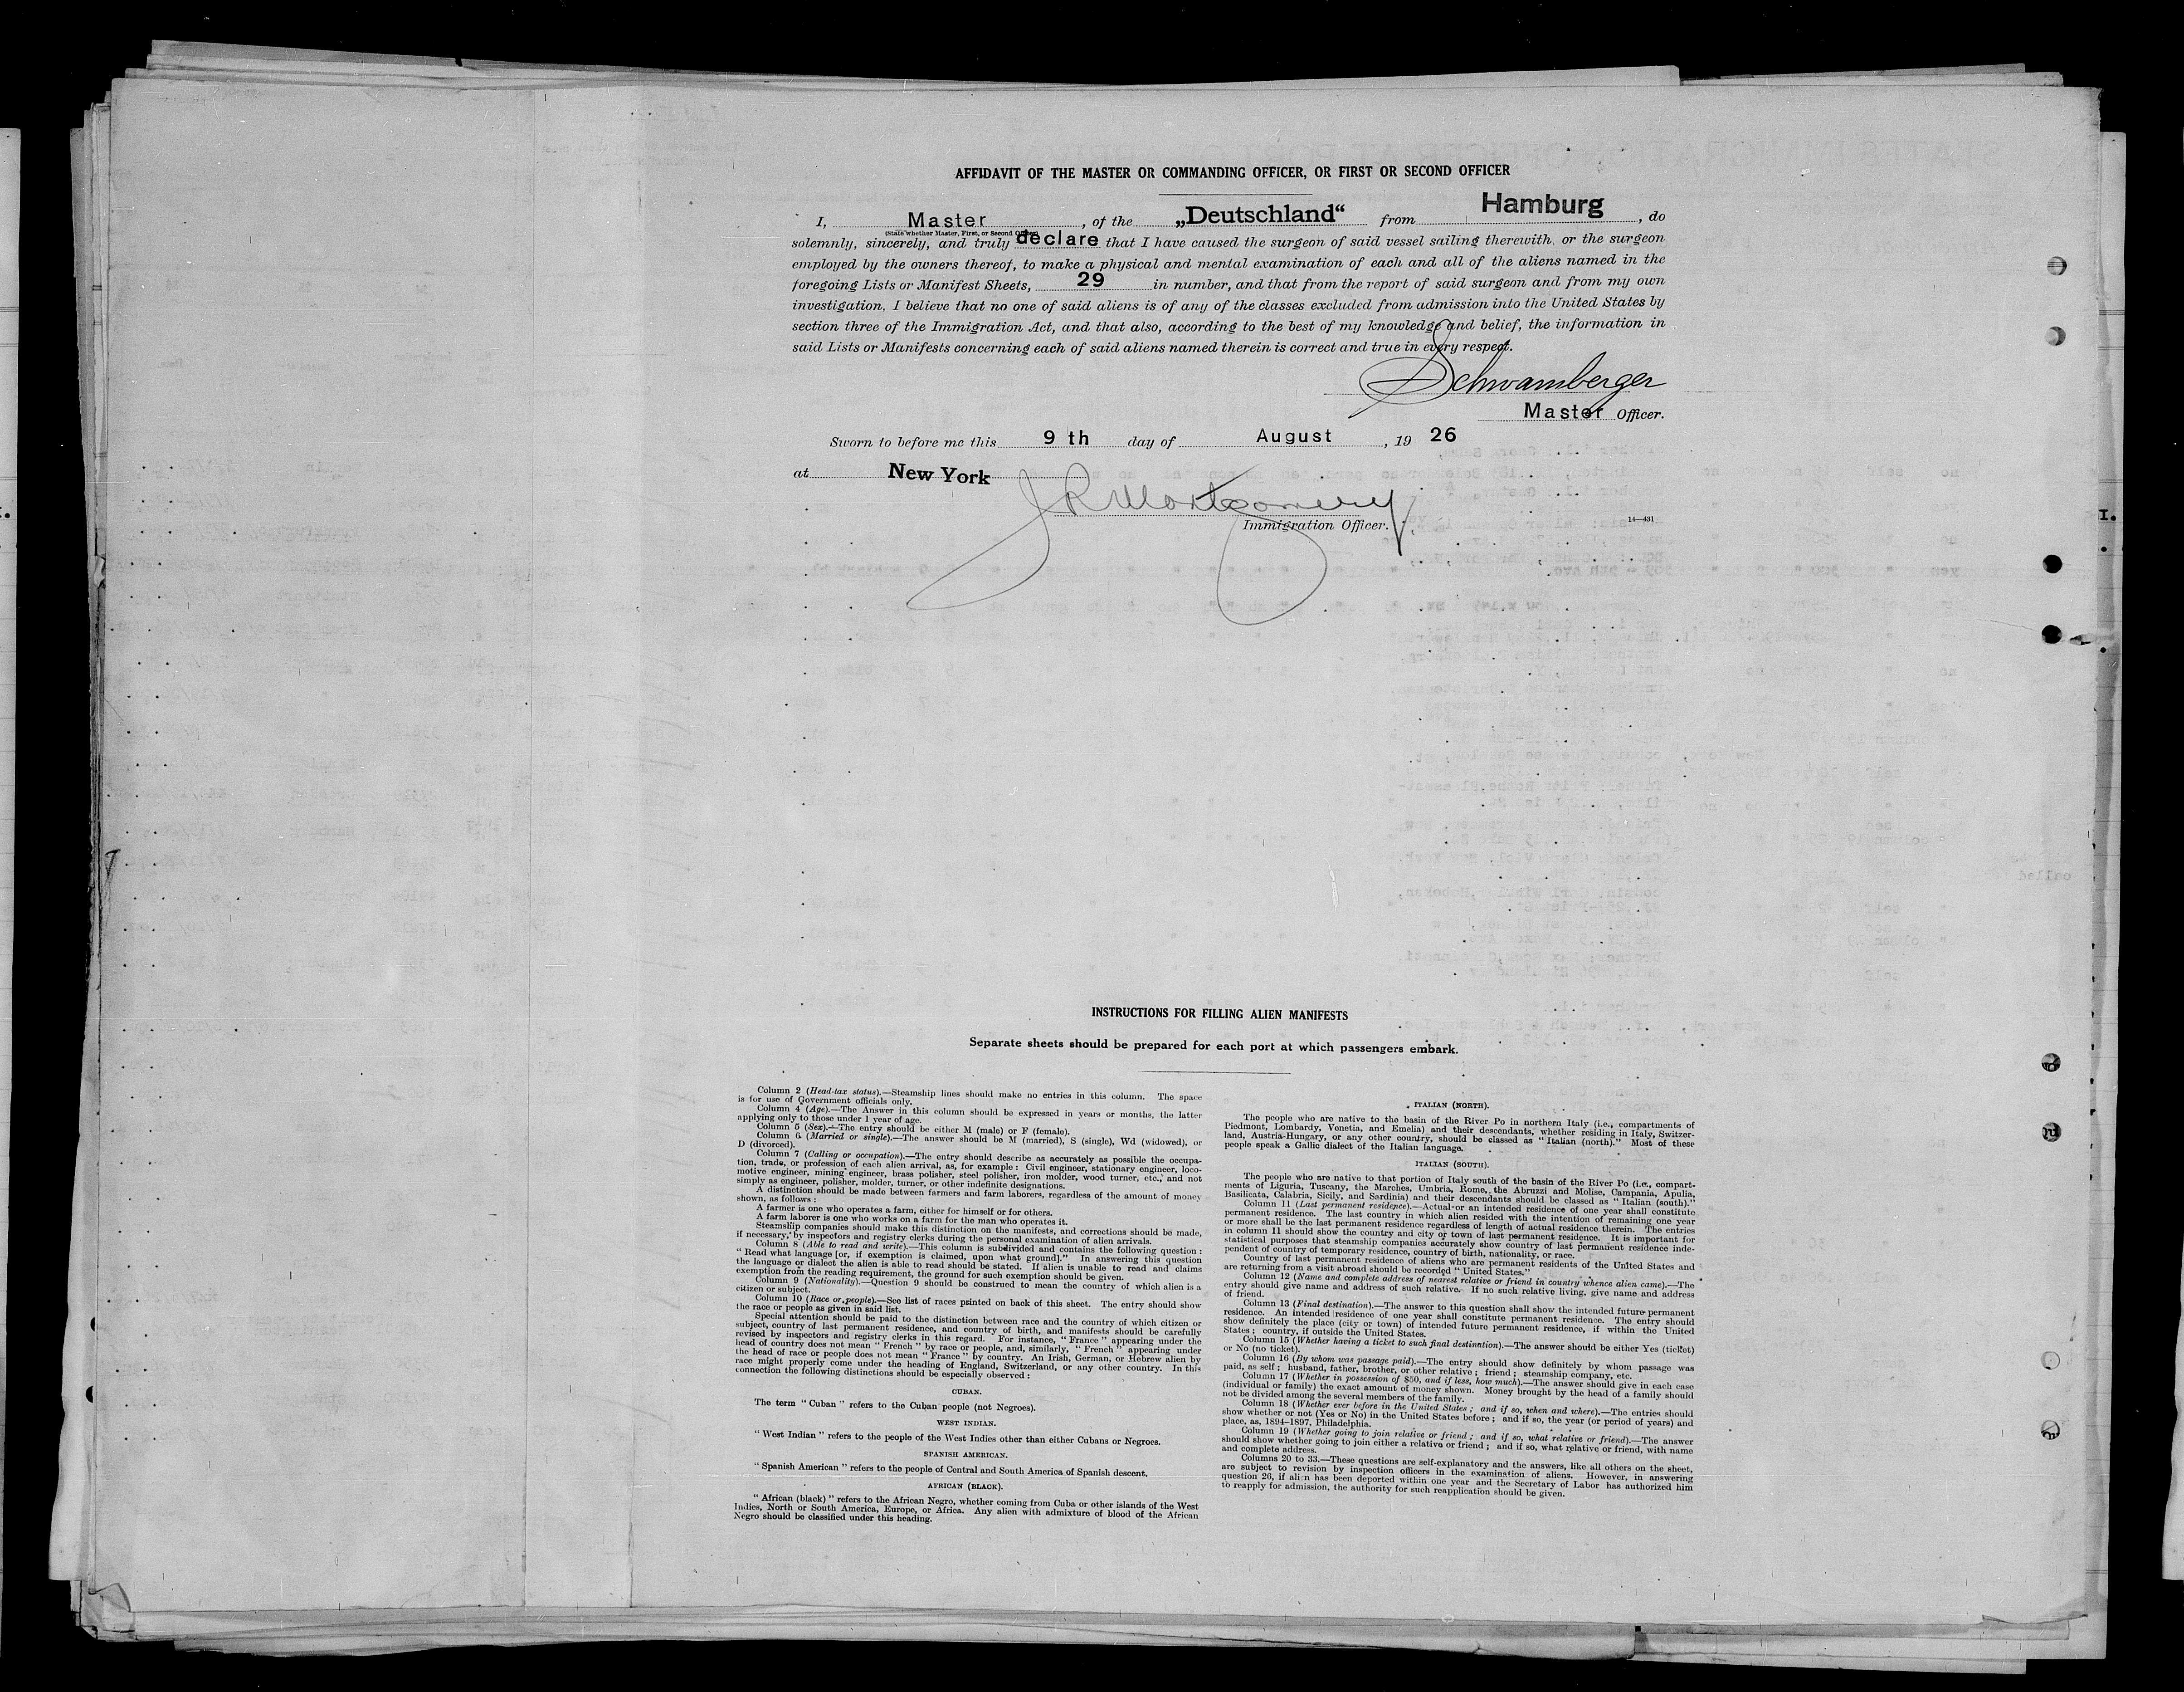 AFFIDAVIT OF THE MASTER OR COMMANDING OFFICER, OR FIRST OR SECOND OFFICER
I, Master, of the „Deutschland“ from Hamburg, do
(State whether Master, First, or Second Officer)
solemnly, sincerely, and truly declare that I have caused the surgeon of said vessel sailing therewith, or the surgeon
employed by the owners thereof, to make a physical and mental examination of each and all of the aliens named in the
foregoing Lists or Manifest Sheets, 29 in number, and that from the report of said surgeon and from my own
investigation, I believe that no one of said aliens is of any of the classes excluded from admission into the United States by
section three of the Immigration Act, and that also, according to the best of my knowledge and belief, the information in
said Lists or Manifests concerning each of said aliens named therein is correct and true in every respect.
Schwamberger
Master Officer.
Sworn to before me this 9 th day of August, 19 26
at New York
J R Montgomery
Immigration Officer.
14—431
INSTRUCTIONS FOR FILLING ALIEN MANIFESTS
Separate sheets should be prepared for each port at which passengers embark.
Column 2 (Head-tax status).—Steamship lines should make no entries in this column. The space
is for use of Government officials only.
Column 4 (Age).—The Answer in this column should be expressed in years or months, the latter
applying only to those under 1 year of age.
Column 5 (Sex).—The entry should be either M (male) or F (female).
Column 6 (Married or single).—The answer should be M (married), S (single), Wd (widowed), or
D (divorced).
Column 7 (Calling or occupation).—The entry should describe as accurately as possible the occupa-
tion, trade, or profession of each alien arrival, as, for example: Civil engineer, stationary engineer, loco-
motive engineer, mining engineer, brass polisher, steel polisher, iron molder, wood turner, etc., and not
simply as engineer, polisher, molder, turner, or other indefinite designations.
A distinction should be made between farmers and farm laborers, regardless of the amount of money
shown, as follows:
A farmer is one who operates a farm, either for himself or for others.
A farm laborer is one who works on a farm for the man who operates it.
Steamship companies should make this distinction on the manifests, and corrections should be made,
if necessary, by inspectors and registry clerks during the personal examination of alien arrivals.
Column 8 (Able to read and write).—This column is subdivided and contains the following question:
“Read what language [or, if exemption is claimed, upon what ground].” In answering this question
the language or dialect the alien is able to read should be stated. If alien is unable to read and claims
exemption from the reading requirement, the ground for such exemption should be given.
Column 9 (Nationality).—Question 9 should be construed to mean the country of which alien is a
citizen or subject.
Column 10 (Race or people).—See list of races printed on back of this sheet. The entry should show
the race or people as given in said list.
Special attention should be paid to the distinction between race and the country of which citizen or
subject, country of last permanent residence, and country of birth, and manifests should be carefully
revised by inspectors and registry clerks in this regard. For instance, “France” appearing under the
head of country does not mean “French” by race or people, and, similarly, “French” appearing under
the head of race or people does not mean “France” by country. An Irish, German, or Hebrew alien by
race might properly come under the heading of England, Switzerland, or any other country. In this
connection the following distinctions should be especially observed:
CUBAN.
The term “Cuban” refers to the Cuban people (not Negroes).
WEST INDIAN.
“West Indian” refers to the people of the West Indies other than either Cubans or Negroes.
SPANISH AMERICAN.
“Spanish American” refers to the people of Central and South America of Spanish descent.
AFRICAN (BLACK).
“African (black)” refers to the African Negro, whether coming from Cuba or other islands of the West
Indies, North or South America, Europe, or Africa. Any alien with admixture of blood of the African
Negro should be classified under this heading.
ITALIAN (NORTH).
The people who are native to the basin of the River Po in northern Italy (i.e., compartments of
Piedmont, Lombardy, Venetia, and Emelia) and their descendants, whether residing in Italy, Switzer-
land, Austria-Hungary, or any other country, should be classed as “Italian (north).” Most of these
people speak a Gallic dialect of the Italian language.
ITALIAN (SOUTH).
The people who are native to that portion of Italy south of the basin of the River Po (i.e., compart-
ments of Liguria, Tuscany, the Marches, Umbria, Rome, the Abruzzi and Molise, Campania, Apulia,
Basilicata, Calabria, Sicily, and Sardinia) and their descendants should be classed as “Italian (south).”
Column 11 (Last permanent residence).—Actual or an intended residence of one year shall constitute
permanent residence. The last country in which alien resided with the intention of remaining one year
or more shall be the last permanent residence regardless of length of actual residence therein. The entries
in column 11 should show the country and city or town of last permanent residence. It is important for
statistical purposes that steamship companies accurately show country of last permanent residence inde-
pendent of country of temporary residence, country of birth, nationality, or race.
Country of last permanent residence of aliens who are permanent residents of the United States and
are returning from a visit abroad should be recorded “United States.”
Column 12 (Name and complete address of nearest relative or friend in country whence alien came).—The
entry should give name and address of such relative. If no such relative living, give name and address
of friend.
Column 13 (Final destination).—The answer to this question shall show the intended future permanent
residence. An intended residence of one year shall constitute permanent residence. The entry should
show definitely the place (city or town) of intended future permanent residence, if within the United
States; country, if outside the United States.
Column 15 (Whether having a ticket to such final destination).—The answer should be either Yes (ticket)
or No (no ticket).
Column 16 (By whom was passage paid).—The entry should show definitely by whom passage was
paid, as self; husband, father, brother, or other relative; friend; steamship company, etc.
Column 17 (Whether in possession of $50, and if less, how much).—The answer should give in each case
(individual or family) the exact amount of money shown. Money brought by the head of a family should
not be divided among the several members of the family.
Column 18 (Whether ever before in the United States; and if so, when and where).—The entries should
show whether or not (Yes or No) in the United States before; and if so, the year (or period of years) and
place, as, 1894-1897, Philadelphia.
Column 19 (Whether going to join relative or friend; and if so, what relative or friend).—The answer
should show whether going to join either a relative or friend; and if so, what relative or friend, with name
and complete address.
Columns 20 to 33.—These questions are self-explanatory and the answers, like all others on the sheet,
are subject to revision by inspection officers in the examination of aliens. However, in answering
question 26, if alien has been deported within one year and the Secretary of Labor has authorized him
to reapply for admission, the authority for such reapplication should be given.